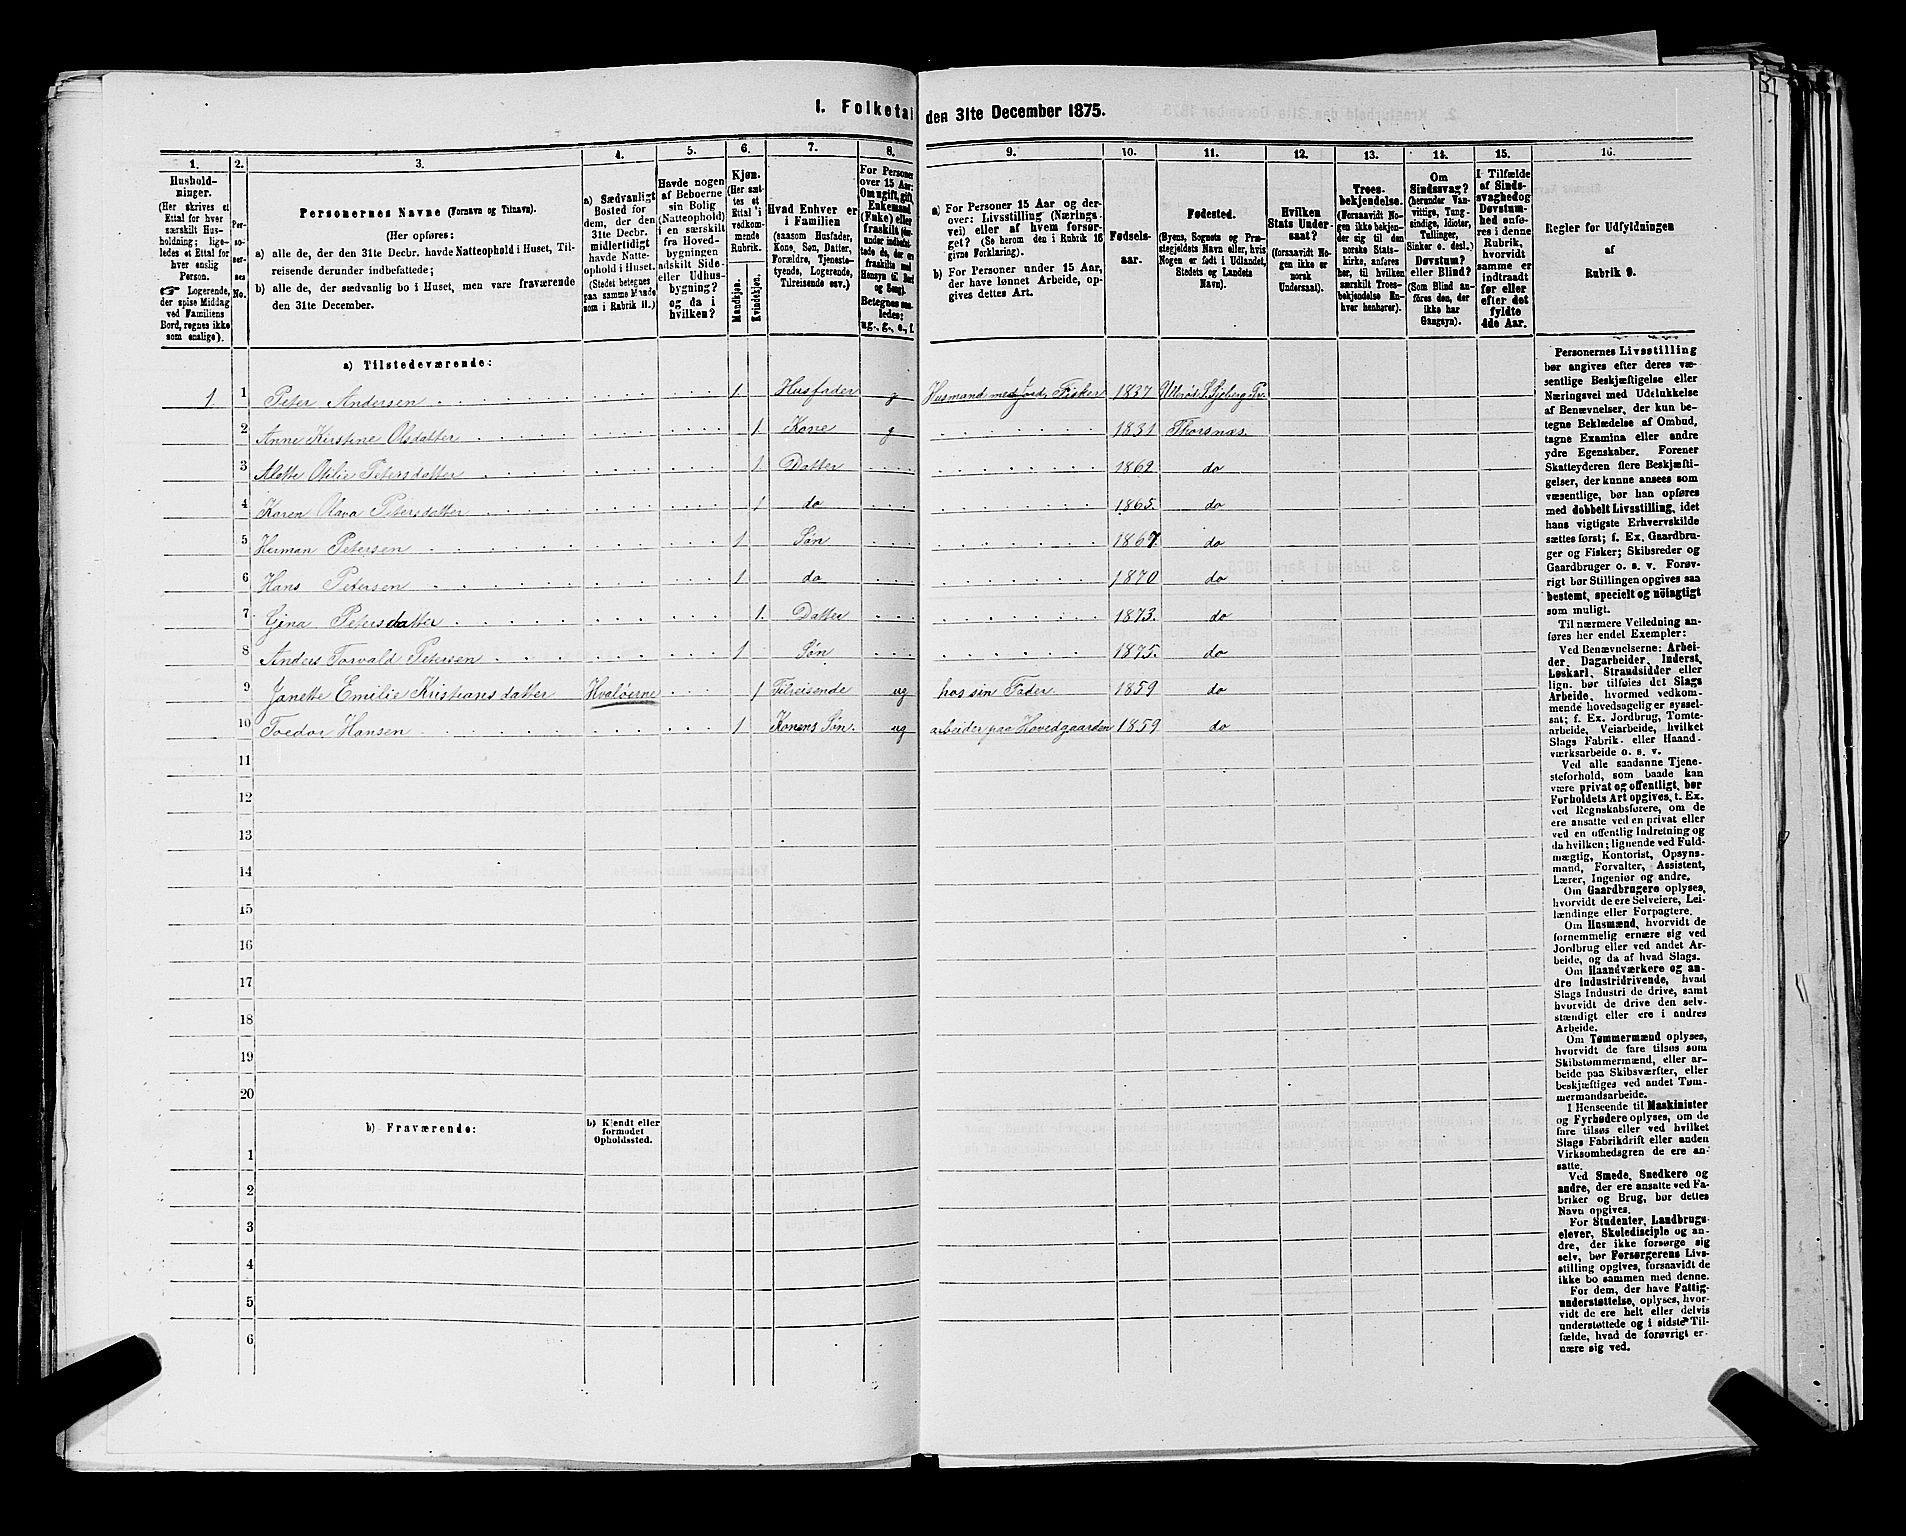 I. Folketal den 31te December 1875.
1. 2. 3. 4. 5. 6. 7. 8. 9. 10. 11. 12. 13. 14. 15. 16.
Husholdninger.
(Her skrives et
Ettal for hver
særskilt Husholdning;
ligeledes et Ettal for
hver enslig
Person.
☞ Logerende,
der spise Middag
ved Familiens
Bord, regnes ikke
som enslige).
Personernes No.
Personernes Navne (Fornavn og Tilnavn).
(Her opføres:
a) alle de, der den 31te Decbr. havde Natteophold i Huset, Tilreisende derunder indbefattede;
b) alle de, der sædvanlig bo i Huset, men vare fraværende
den 31te December.
a) Sædvanligt
Bosted for
dem, der den
31te Decbr.
midlertidigt
havde Natteophold i Huset.
(Stedet betegnes
paa samme Maade
som i Rubrik 11.)
Havde nogen
af Beboerne
sin Bolig
(Natteophold)
i en særskilt
fra Hovedbygningen
adskilt Side-
eller Udhusbygning?
og da i
hvilken?
Kjøn.
(Her sættes et
Ettal i
vedkommende
Rubrik.
Mandkjøn.
Kvindekjøn.
Hvad Enhver er
i Familien
(saasom Husfader,
Kone, Søn, Datter,
Forældre, Tjenestetyende, Logerende,
Tilreisende osv.)
For Personer
over 15 Aar:
Om ugift, gift,
Enkemand
(Enke) eller
fraskilt
Betegnes saaledes:
ug., g., e., f.
a) For Personer 15 Aar og derover: Livsstilling (Næringsvei) eller af hvem forsørget? (Se herom den i Rubrik 16
givne Forklaring).
b) For Personer under 15 Aar,
der have lønnet Arbeide, opgives dettes Art.
Fødselsaar.
Fødested.
(Byens, Sognets og Præstegjeldets Navn eller, hvis
Nogen er født i Udlandet,
Stedets og Landets
Navn).
Hvilken
Stats Undersaat?
(forsaavidt Nogen ikke er
norsk
Undersaat).
Troesbekjendelse.
(Forsaavidt Nogen ikke bekjender sig til den
norske Statskirke, anføres
her, til hvilken
særskilt Troesbekjendelse Enhver henhører).
Om
Sindssvag?
(herunder Vanvittige, Tungsindige, Idioter,
Tullinger,
Sinker o. desl.)
Døvstum?
eller Blind?
(Som Blind anføres den, der
ikke har
Gangsyn).
I Tilfælde
af Sindssvaghed og
Døvstumhed anføres i denne
Rubrik,
hvorvidt
samme er
indtraadt
før eller
efter det
fyldte
4de Aar.
Regler for Udfyldningen
af
Rubrik 9.
a) Tilstedeværende:
1 1 Peter Andersen 1. Husfader g Husmand med Jord, Fisker 1837
2 Anne Kirstine Olsdatter 1. Kone g 1831 Thorsnæs.
3 Alette Otilie Petersdatter 1 Datter 1862 do
4 Karen Olava Petersdatter 1 do 1865. do
5 Herman Petersen 1 Søn 1867. do
6 Hans Petersen 1 do 1870 do
7 Gina Petersdatter 1. Datter 1873. do
8 Anders Torvald Petersen 1 Søn 1875. do
9 Janette Emilie Kristiansdatter Hvaløerne 1 Tilreisende ug hos sin Fader. 1859 do
10 Toedor Hansen 1 Konens Søn. ug arbeider paa Hovedgaarden 1859 do
11
12
13
14
15
16
17
18
19
20
b) Fraværende: b) Kjendt eller
formodet
Opholdssted.
1
2
3
4
5
6
Personernes Livsstilling
bør angives efter deres væsentlige Beskjæftigelse eller
Næringsvei med Udelukkelse
af Benævnelser, der kun betegne Beklædelse af Ombud,
tagne Examina eller andre
ydre Egenskaber. Forener
Skatteyderen flere Beskjæftigelser, der kunne ansees som
væsentlige, bør han opføres
med dobbelt Livsstilling, idet
hans vigtigste Erhvervskilde
sættes først; f. Ex. Gaardbruger og Fisker; Skibsreder og
Gaardbruger o. s. v. Forøvrigt bør Stillingen opgives saa
bestemt, specielt og nøiagtigt
som muligt.
Til nærmere Veiledning anføres her endel Exempler:
Ved Benævnelserne: Arbeider, Dagarbeider, Inderst,
Løskarl, Strandsidder eller
lign. bør tilføies det Slags
Arbeide, hvormed vedkommende hovedsagelig er sysselsat; f. Ex. Jordbrug, Tomtearbeide, Veiarbeide, hvilket
Slags Fabrik- eller Haandværksarbeide o. s. v.
Ved alle saadanne Tjenesteforhold, som baade kan
være privat og offentligt, bør
Forholdets Art opgives, f. Ex.
ved Regnskabsførere, om de
ere ansatte ved en privat eller
ved en offentlig Indretning og
da hvilken; lignende ved Fuldmægtig, Kontorist, Opsynsmand, Forvalter, Assistent,
Lærer, Ingeniør og andre.
Om Gaardbrugere oplyses,
hvorvidt de ere Selveiere, Leilændinge eller Forpagtere.
Om Husmænd, hvorvidt de
fornemmelig ernære sig ved
Jordbrug eller ved andet Arbeide, og da af hvad Slags.
Om Haandværkere og andre Industridrivende, hvad
Slags Industri de drive, samt
hvorvidt de drive den selvstændigt eller ere i andres
Arbeide.
Om Tømmermænd oplyses,
hvorvidt de fare tilsøs som
Skibstømmermænd, eller arbeide paa Skibsværfter, eller
beskjæftiges ved andet Tømmermandsarbeide.
I Henseende til Maskinister
og Fyrbødere oplyses, om de
fare tilsøs eller ved hvilket
Slags Fabrikdrift eller anden
Virksomhedsgren de ere ansatte.
Ved Smede, Snedkere og
andre, der ere ansatte ved Fabriker og Brug, bør dettes
Navn opgives.
For Studenter, Landbrugselever, Skoledisciple og andre, der ikke forsørge sig
selv, bør Forsørgerens Livsstilling opgives, forsaavidt de
ikke bo sammen med denne.
For dem, der have Fattigunderstøttelse, oplyses, hvorvidt de ere helt eller delvis
understøttede og i sidste Tilfælde, hvad de forøvrigt ernære sig ved.